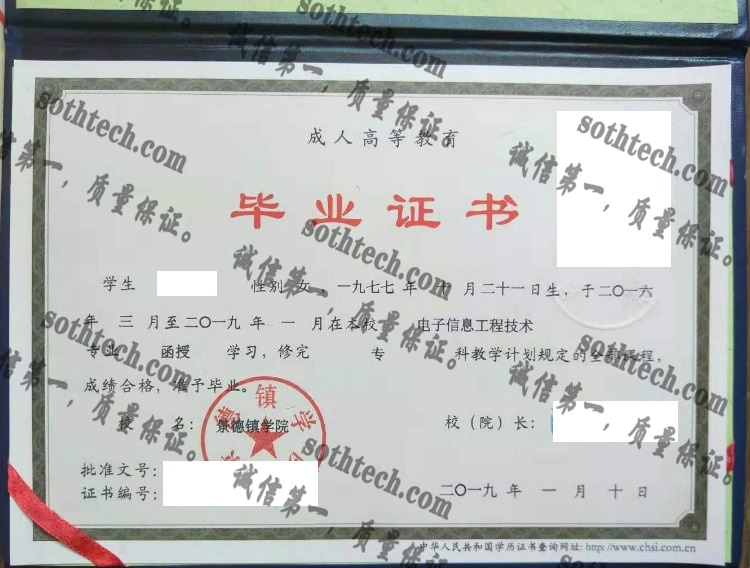 成人高等教育
毕业证书
学生 性别 女，一九七七年 十 月二十一日生，于二〇一六
年 三 月至二〇一九年 一 月在本校 电子信息工程技术
专业 函授 学习，修完 专 科教学计划规定的全部课程，
成绩合格，准予毕业。
校 名： 景德镇学院
校（院）长：
批准文号：
证书编号：
二〇一九 年 一 月 十 日
中华人民共和国学历证书查询网址: http://www.chsi.com.cn
德镇学
sothtech.com
诚信第一，质量保证。
sothtech.com
诚信第一，质量保证。
sothtech.com
诚信第一，质量保证。
sothtech.com
诚信第一，质量保证。
sothtech.com
诚信第一，质量保证。
sothtech.com
诚信第一，质量保证。
sothtech.com
诚信第一，质量保证。
sothtech.com
sothtech.com